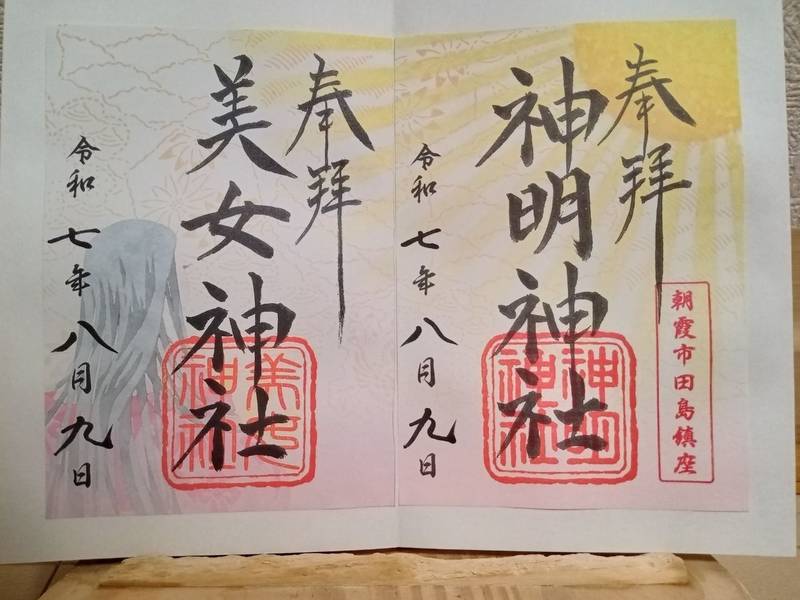 奉拝
神明神社
令和七年八月九日
朝霞市田島鎮座
奉拝
美女神社
令和七年八月九日
美女神社